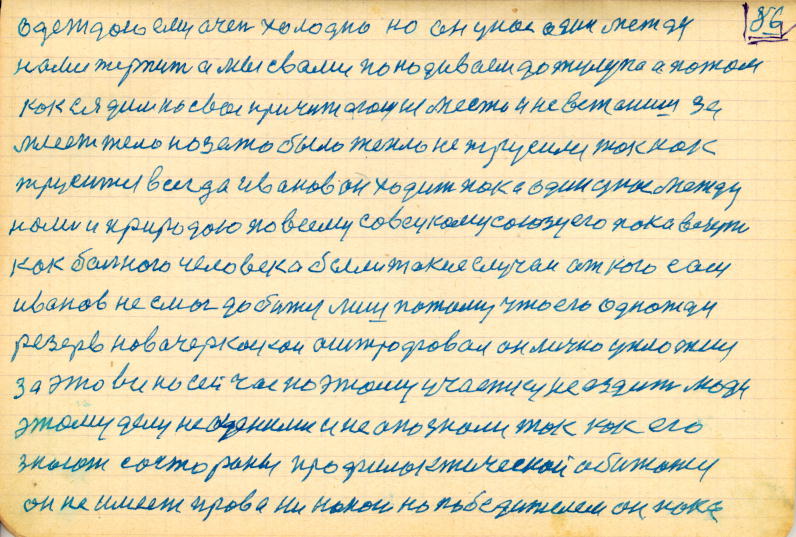 86
одеждою ему очен холодно но он упое один между
нами терпит а мы свами по подиваем до тулупа а потом
кок сядим на свои причитающи места и не встаниш за
млеет тело по зато было тепло не трусили ток как
трусити всегда иванов он ходит пока один упое между
нами и природою по всему совецкому союзу его пока везути
как болного человека были такие случаи от кого сам
иванов не смог добитис лиш потому что его одножди
резерв новочеркоской оштрофовал он лично уплотил
за это ви но сей час по этому участку не ездит люди
этому делу не оценили и не опознали ток как его
знают состороны профилоктической обитожи
он не имеет права ни накой но победителем он пока